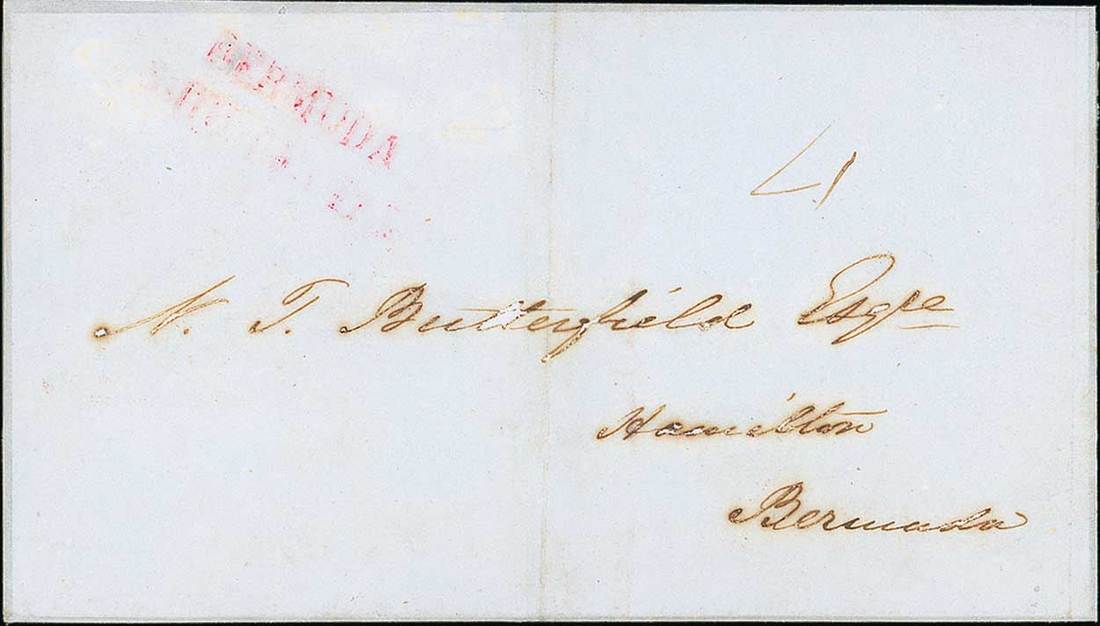 BERMUDA
N. T. Butterfield Esqre
Hamilton
Bermuda